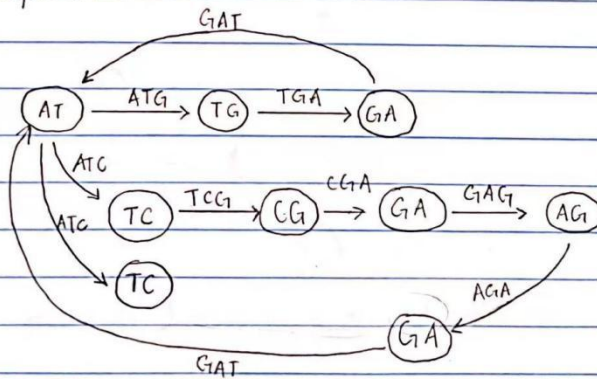 GAT
AT ATG TG TGA GA
ATC
TC TCG CG CGA GA GAG AG
ATC
TC
AGA
GA
GAT